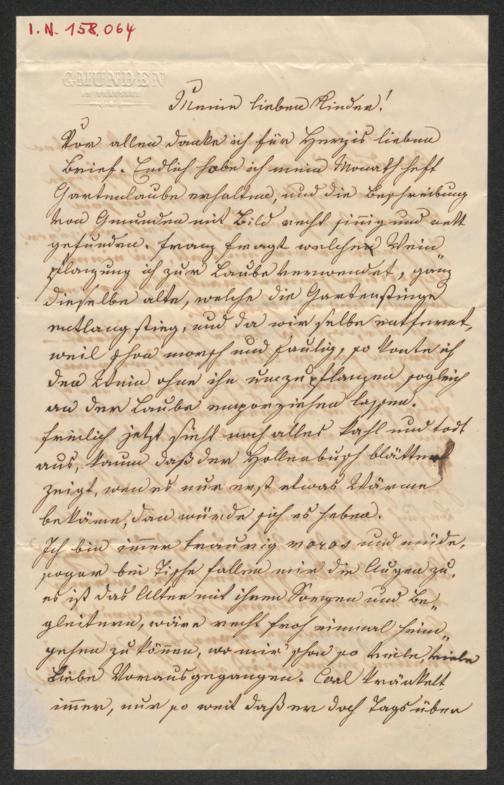 I.N. 158.064
GMUNDEN
Meine lieben Kinder!
Vor allen danke ich für Herzis lieben
Brief. Endlich habe ich mein Monatsheft
Gartenlaube erhalten, und die Beschreibung
von Gmunden mit Bild recht sinnig und nett
gefunden. Franz fragt welchen Wein
pflanzung ich zur Laube verwendet, ganz
dieselbe alte, welche die Gartenstiege
entlang stieg, und da wir selbe entfernet,
weil schon morsch und faulig, so konte ich
den Wein ohne ihn umzupflanzen sogleich
an der Laube emporziehen lassen.
freilich jetzt sieht noch alles kahl und todt
aus, kaum daß der Hollerbusch blätter
zeigt, wen es nur erst etwas Wärme
bekäme, dan würde sich es heben.
Ich bin immer traurig und müde,
sogar bei Tische fallen mir die Augen zu,
es ist das Alter mit ihren Sorgen und Be-
gleitern, wäre recht froh einmal heim-
gehen zu können, wo mir schon so viele, viele
Liebe Vorausgegangen. Carl kränkelt
immer, nur so weit daß er doch Tags über